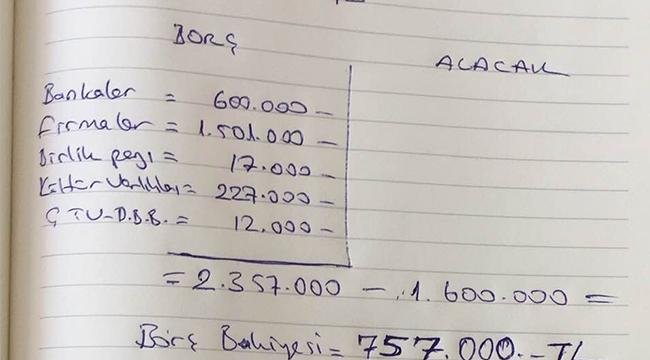 BORÇ
ALACAK
Bankalar = 600.000 -
Firmalar = 1.501.000 -
Birlik payı = 17.000 -
Kültür Varlıkları = 227.000 -
ÇTV-D.B.B. = 12.000 -
= 2.357.000 - 1.600.000 =
Borç Bakiyesi = 757.000.-TL